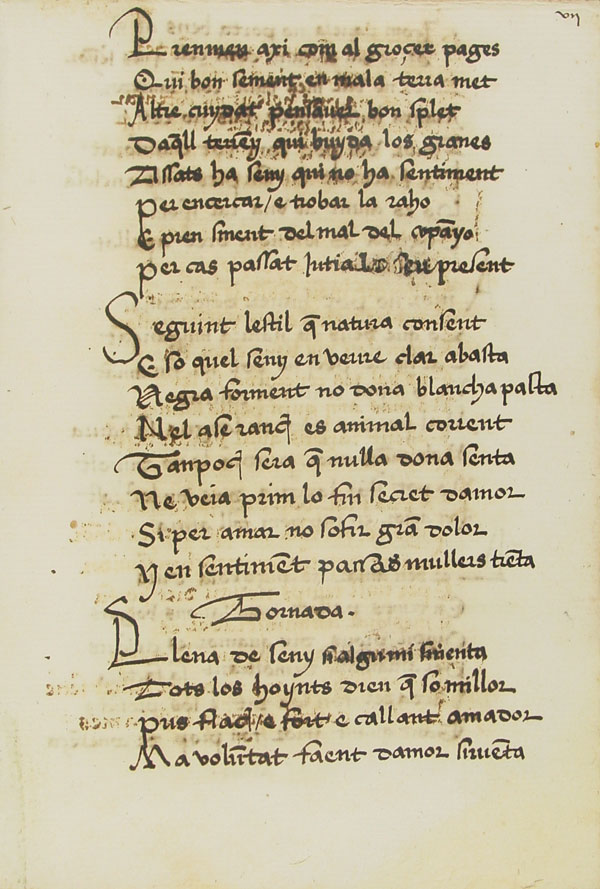 vii
Prenmen axi com al grocer pages
Qui bon sement en mala terra met
Altre cuydat pensauer bon splet
Daq̄ll terreny qui buyda los graners
Assats ha seny qui no ha sentiment
Per encercar / e trobar la raho
E pren sment del mal del cōpāyo
Per cas passat Jutia Lo seu present
Seguint lestil q̄ natura consent
E so quel seny en veure clar abasta
Negra forment no dona blancha pasta
Nel ase ranch es animal corrent
Tanpoch sera q̄ nulla dona senta
Ne veia prim lo fin secret damor
Si per amar no sofir grā dolor
Y en sentimēt passas mullers trēta
Tornada .
Plena de seny si algu mi
Tots los hoynts dien q̄ so millor
Pus flach / e fort e callant amador
Ma volūtat faent damor siruēta